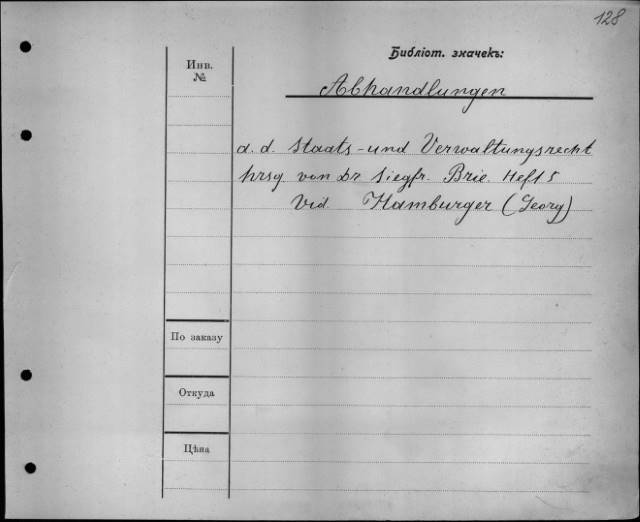 128
Библіот. значекъ:
Инв.
№
Abhandlungen
a. d. Staats - und Verwaltungsrecht
hrsg. von Dr Siegfr. Brie. Heft 5
Vid. Hamburger (Georg)
По заказу
Откуда
Цѣна